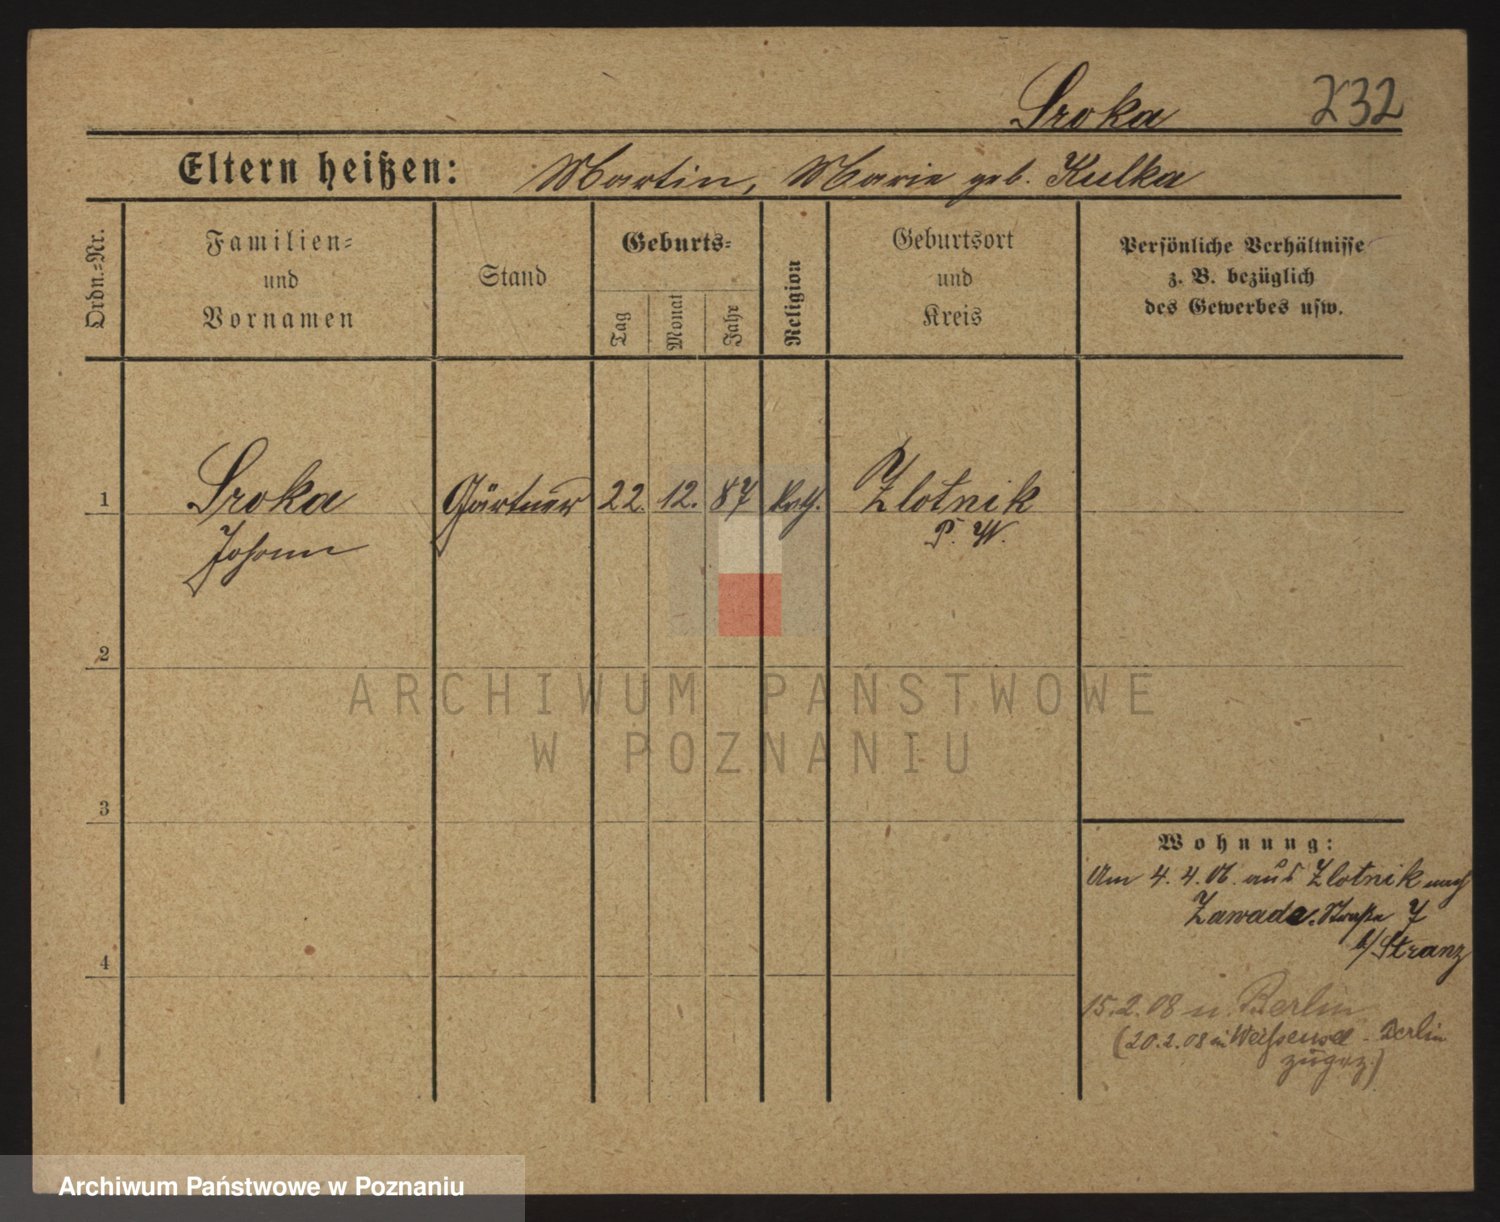 Sroka 232
Eltern heißen: Martin, Marie geb. Kulka
Ordn.=Nr.
Familien=
und
Vornamen
Stand
Geburts=
Tag
Monat
Jahr
Religion
Geburtsort
und
Kreis
Persönliche Verhältnisse
z. B. bezüglich
des Gewerbes usw.
1 Sroka Gärtner 22. 12. 87 kath. Zlotnik
Johann P. W.
2
ARCHIWUM PAŃSTWOWE
W POZNANIU
3
Wohnung:
Am 4. 4. 06. aus Zlotnik nach
Zawade. Straße 7
b/ Stranz
4
15.2.08 n. Berlin
(20.2.08 in Weißensee - Berlin
zugez.)
Archiwum Państwowe w Poznaniu